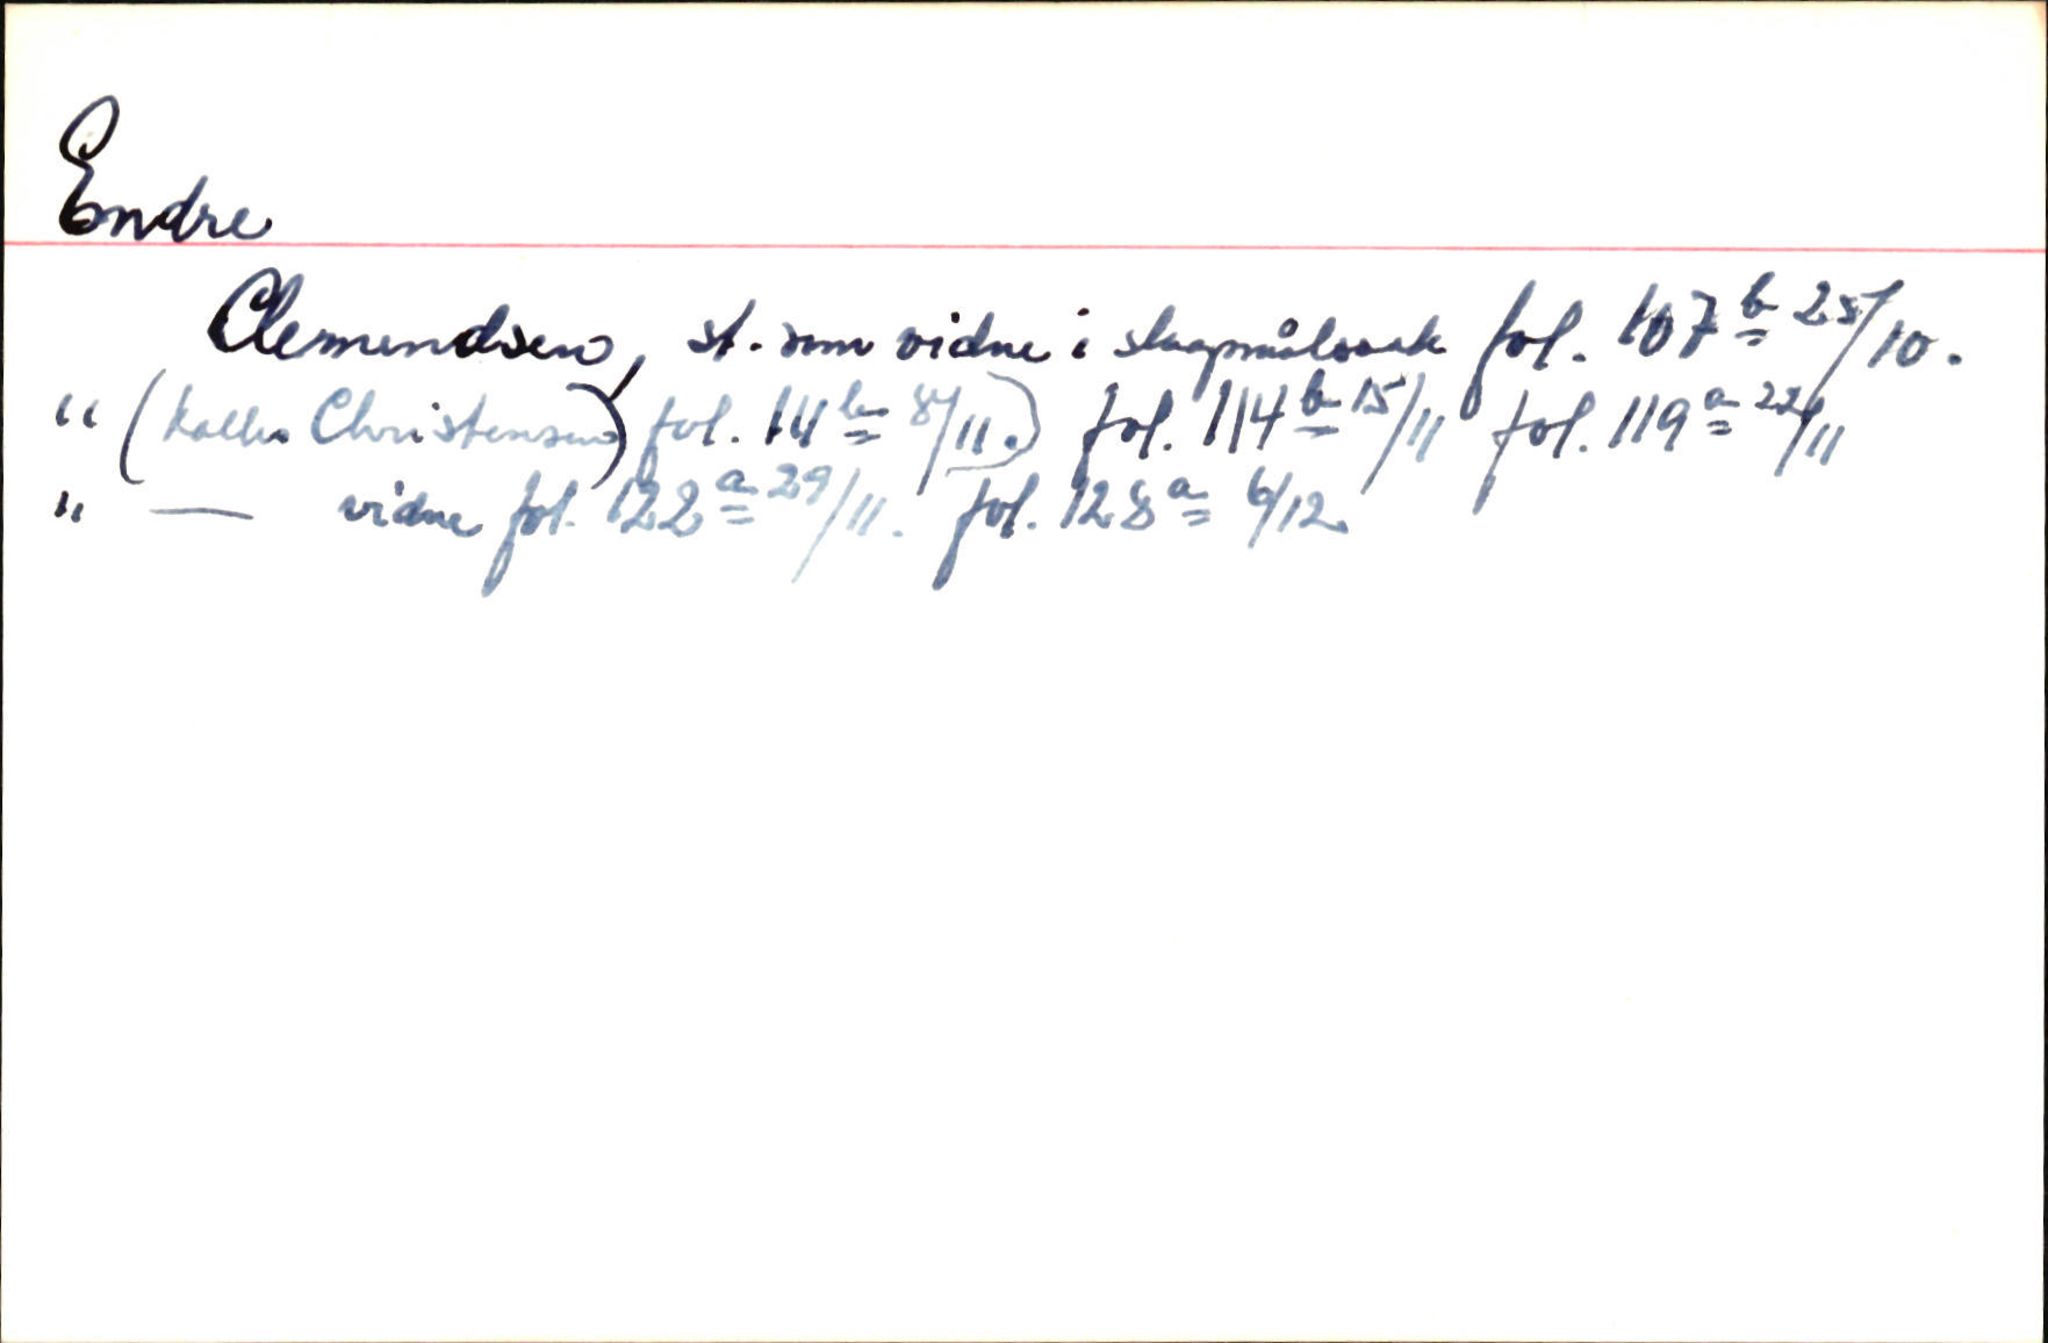 Endre
Clemendsen, st. som vidne i slagsmålssak fol. 107 b 25/10.
" (kalles Christensen) fol. 111 b 8/11.) fol. 114 b 15/11 fol. 119 a 22/11
" — vidne fol. 122 a 29/11. fol. 128 a 6/12.